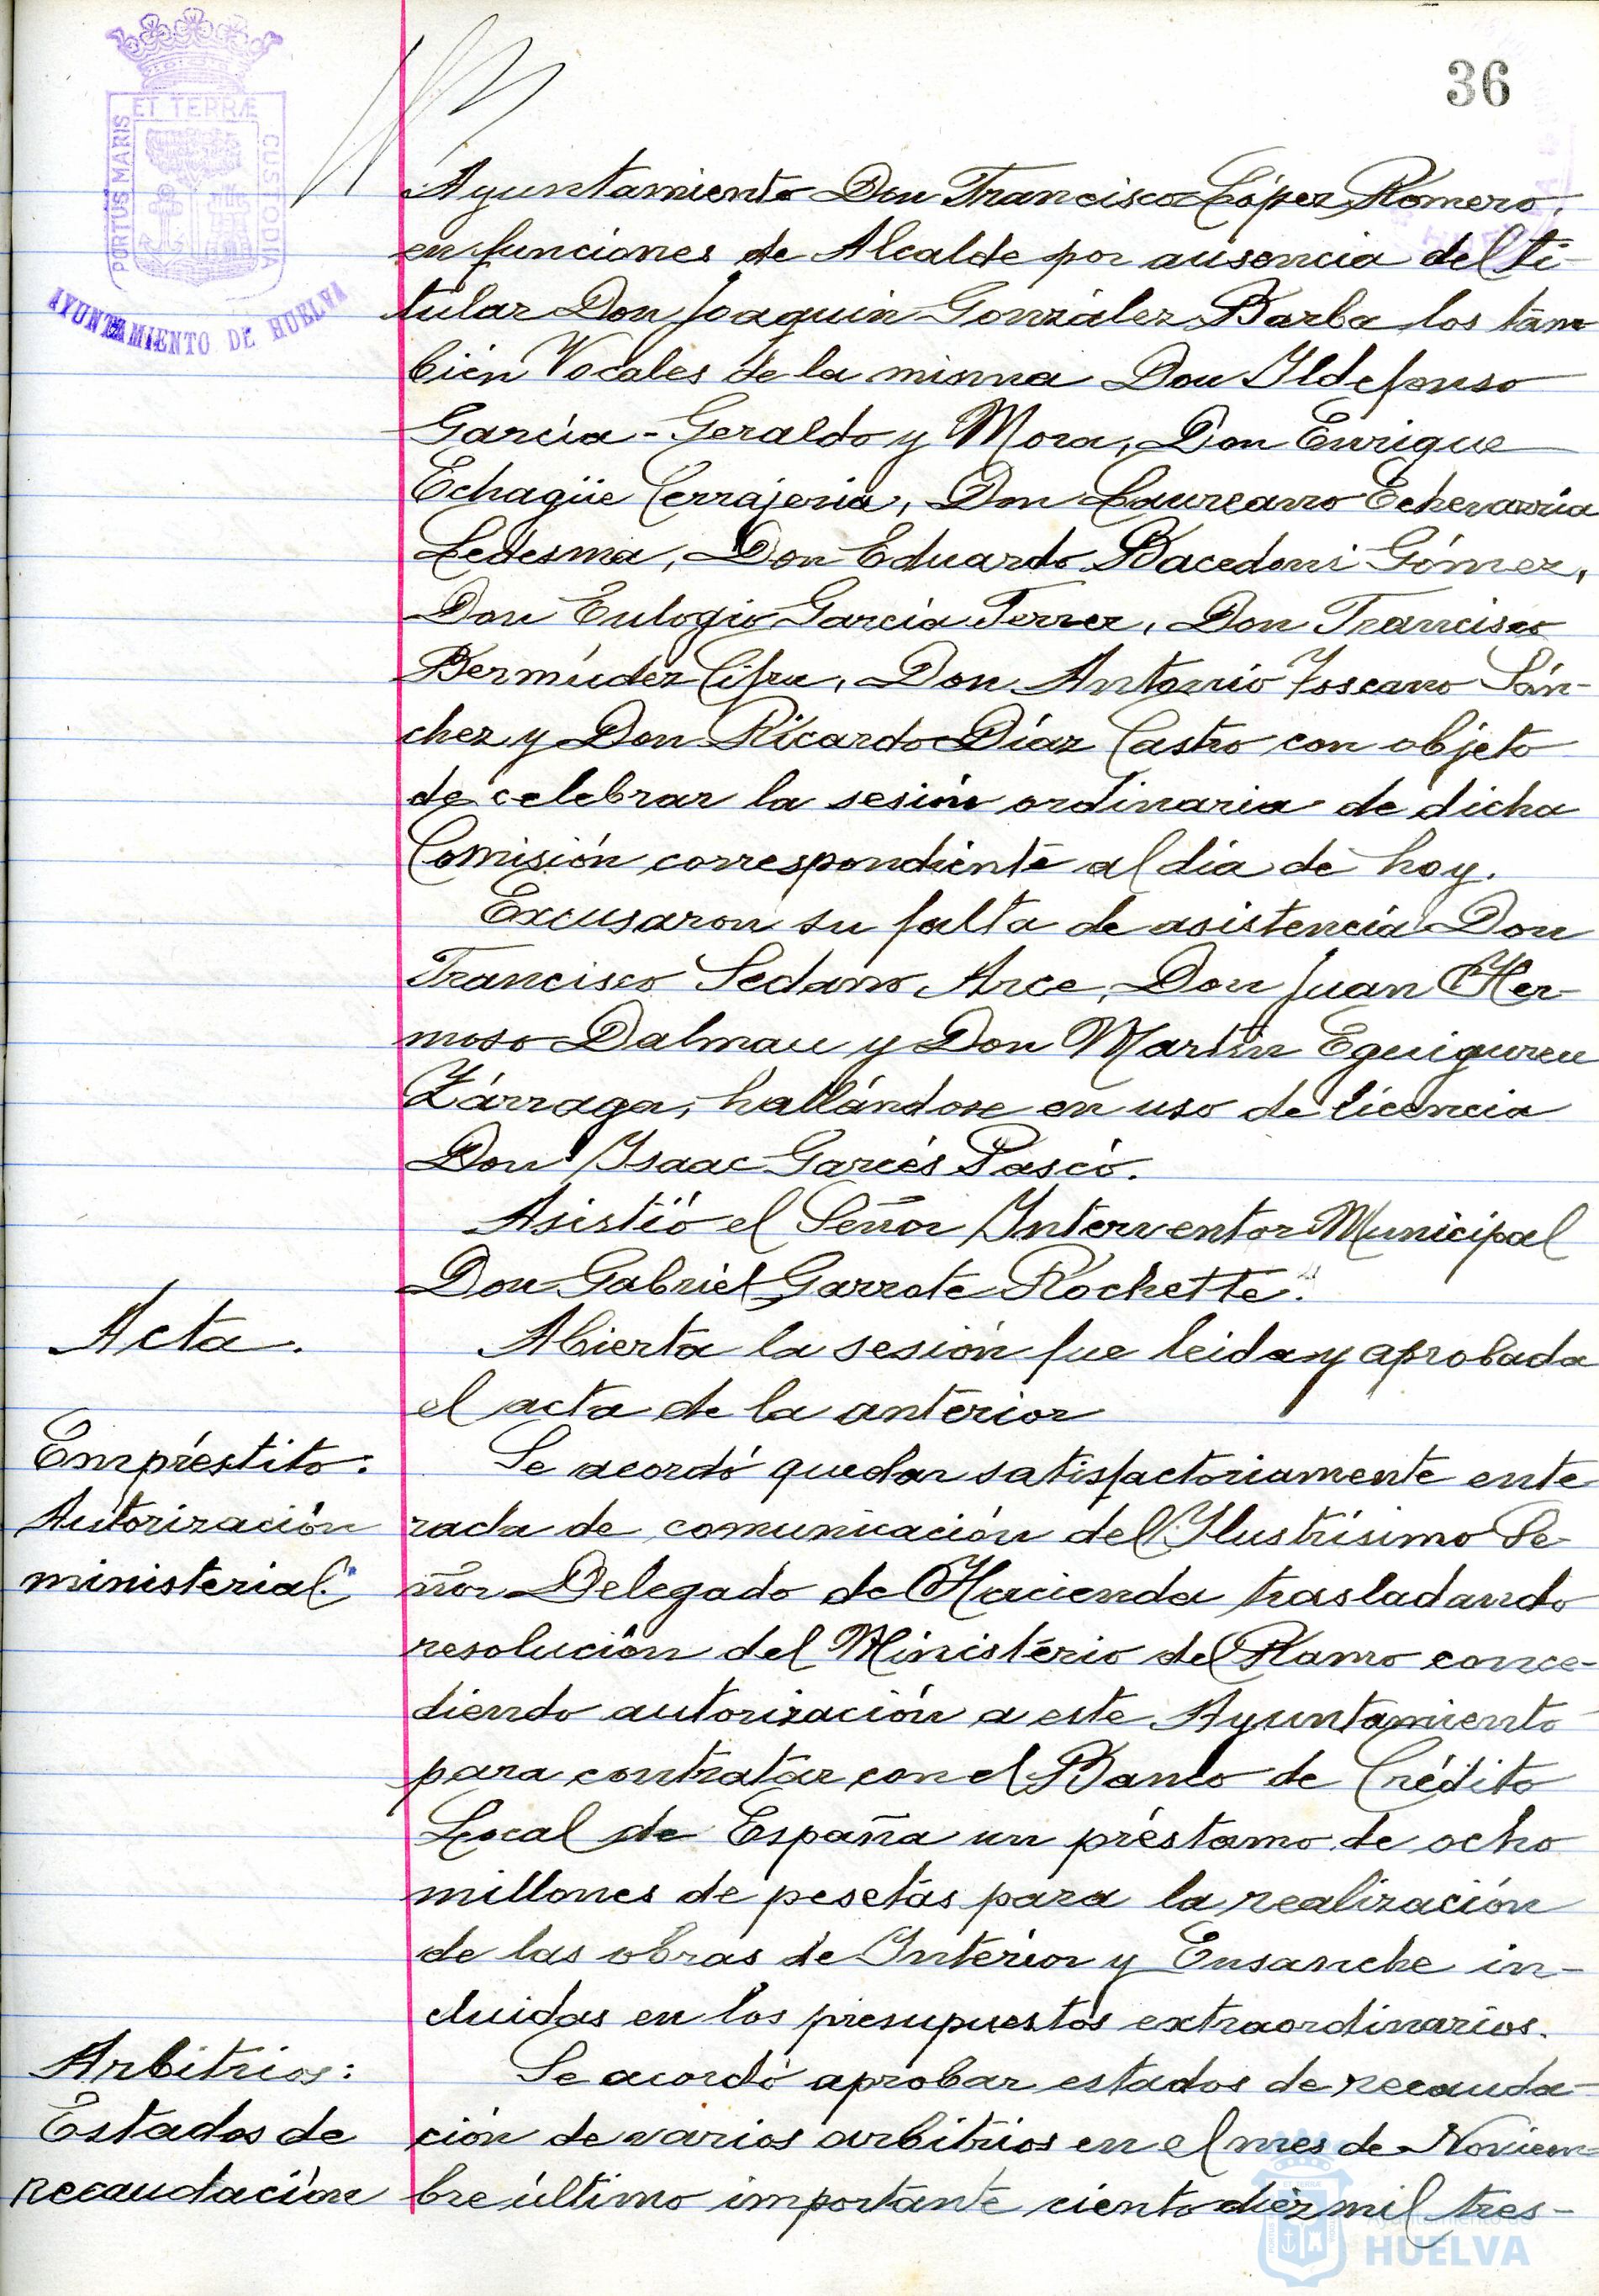 36
ET TERRÆ
PORTUS MARIS
CUSTODIA
AYUNTAMIENTO DE HUELVA
Ayuntamiento Don Francisco López Romero,
en funciones de Alcalde por ausencia del ti-
tular Don Joaquin González Barba los tam
bién Vocales de la misma Don Ildefonso
García-Geraldo y Mora, Don Enrique
Echagüe Cerrajeria, Don Laureano Echevarria
Ledesma, Don Eduardo Bacedoni Gómez,
Don Eulogio Garcia Ferrer, Don Francisco
Bermúdez Cifru, Don Antonio Toscano Sán-
chez y Don Ricardo Díaz Castro con objeto
de celebrar la sesión ordinaria de dicha
Comisión correspondiente al dia de hoy.
Excusaron su falta de asistencia Don
Francisco Sedano Arce, Don Juan Her-
moso Dalmau y Don Martin Eguiguren
Zárraga, hallándose en uso de licencia
Don Isaac Garcés Pascó.
Asistió el Señor Interventor Municipal
Don Gabriel Garrote Rochette.
Acta.
Abierta la sesión fue leida y aprobada
el acta de la anterior
Empréstito:
Autorización
ministerial.
Se acordó quedar satisfactoriamente ente
rada de comunicación del Ilustrísimo Se-
ñor Delegado de Hacienda trasladando
resolución del Ministério del Ramo conce-
diendo autorización a este Ayuntamiento
para contratar con el Banco de Crédito
Local de España un préstamo de ocho
millones de pesetas para la realización
de las obras de Interior y Ensanche in-
cluidas en los presupuestos extraordinarios.
Arbitrios:
Estados de
recaudación
Se acordó aprobar estados de recauda-
ción de varios arbitrios en el mes de Noviem-
bre último importante ciento diez mil tres-
Ayuntamiento de
HUELVA